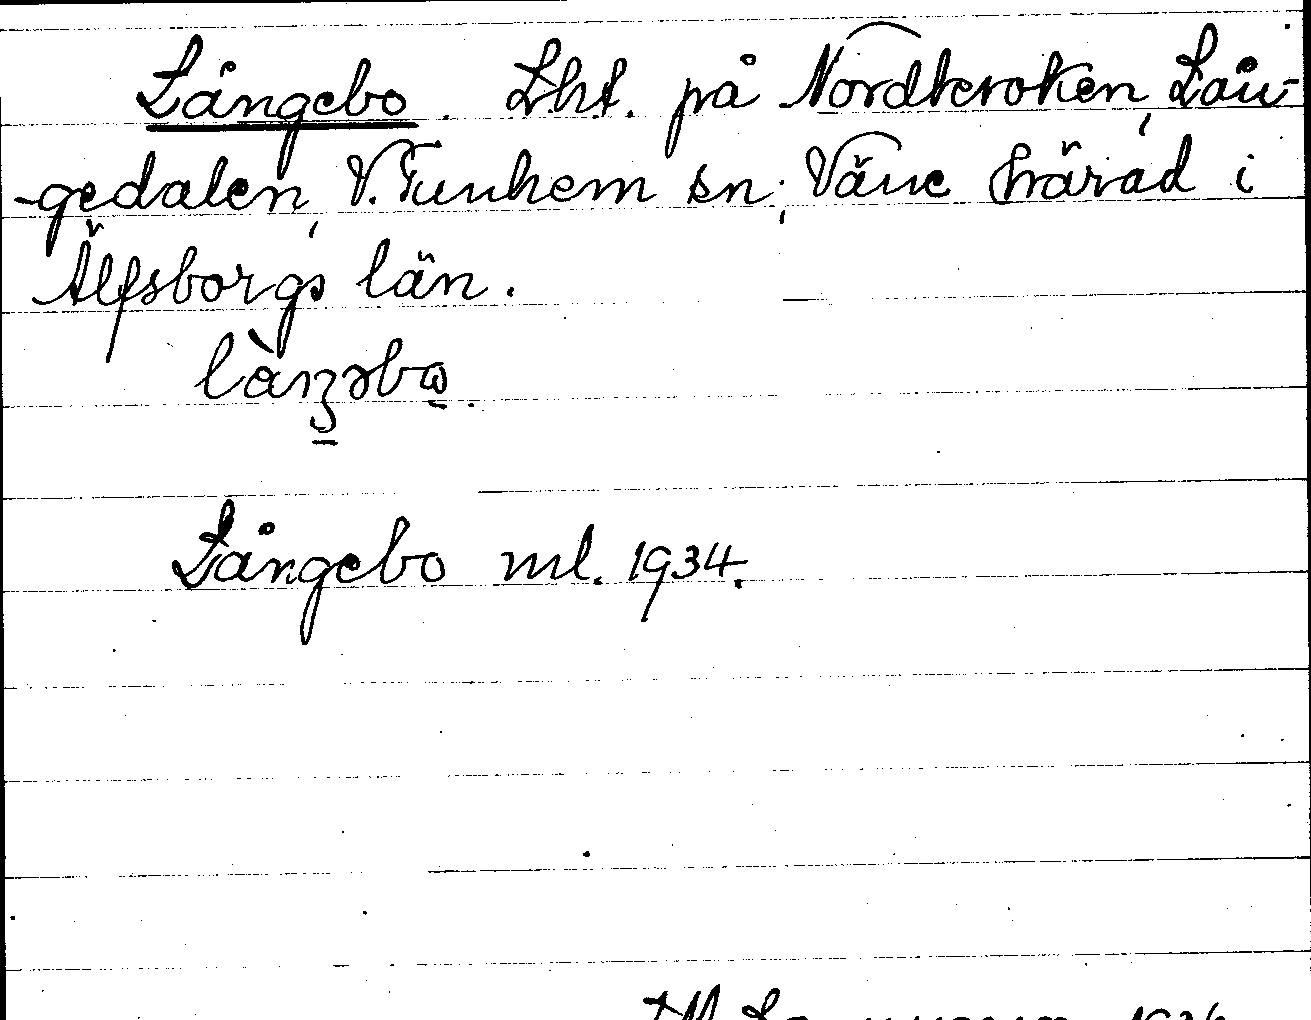 Långebo. Lht. på Nordkroken, Lån-
-gedalen, V. Tunhem sn; Väne härad i
Älfsborgs län.
là​ŋəbω.
Långebo ml. 1934.
1936